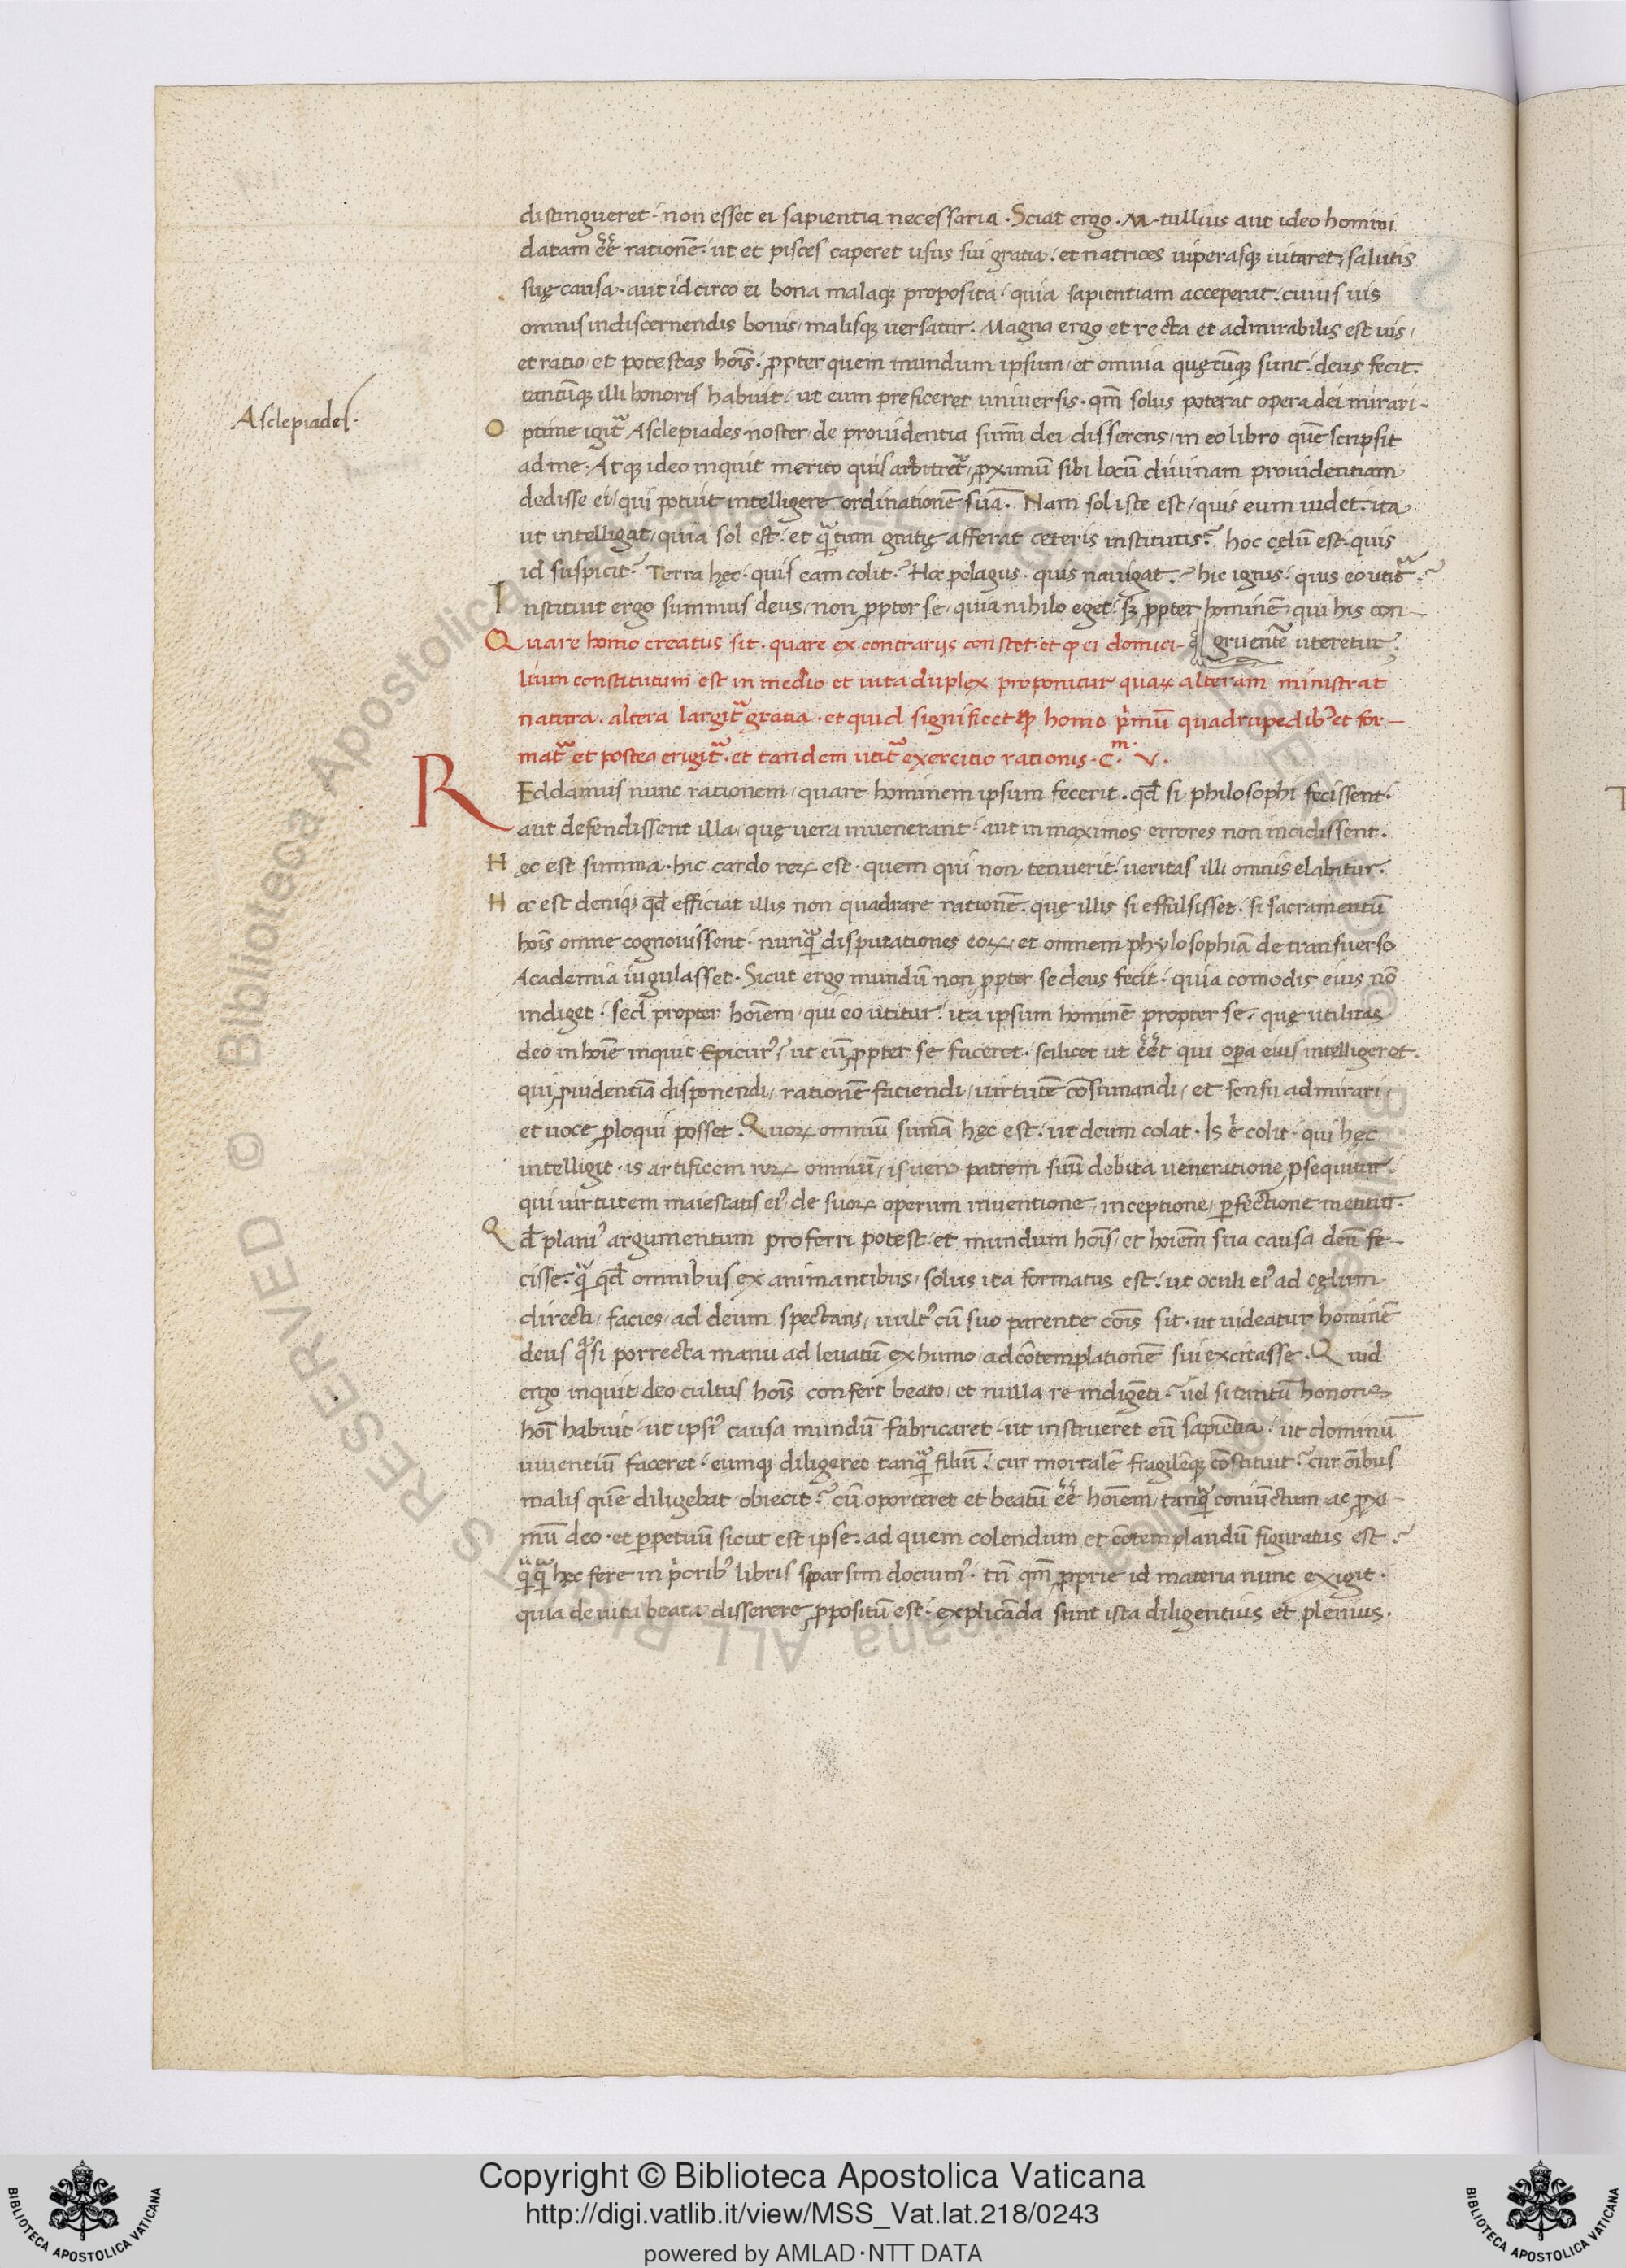 distingueret· non esset ei sapientia necessaria· Sciat ergo· M· tullius aut ideo homini
datam eē rationē· ut et pisces caperet usus sui gratia· et natrices uiperasq; uitaret, salutis
suę causa· aut idcirco ei bona malaq; proposita· quia sapientiam acceperat· cuius uis
omnis in discernendis bonis, malisq; uersatur· Magna ergo et recta et admirabilis est uis,
et ratio, et potestas hoīs· ꝓpter quem mundum ipsum, et omnia quęcūq; sunt· deus fecit·
tantūq; illi honoris habuit· ut eum preficeret uniuersis· qm̄ solus poterat opera dei mirari-
Asclepiades·
Optime igit᷑ Asclepiades noster, de prouidentia summi dei disserens, in eo libro quē scripsit
ad me· Atq; ideo inquit merito quis arbitret᷑, ꝓximū sibi locū diuinam prouidentiam
dedisse ei, qui potuit intelligere ordinationē suā· Nam sol iste est, quis eum uidet· ita
ut intelligat, quia sol est· et qͣntum gratię afferat ceteris institutis? hoc cęlū est· quis
id suspicit? Terra hęc· quis eam colit? Hoc pelagus· quis nauigat? hic ignis· quis eo utit᷑?
Instituit ergo summus deus, non ꝓpter se, quia nihilo eget· sꝫ ꝓpter hominē, qui his con-
gruentē uteretur·
Quare homo creatus sit· quare ex contrarijs constet· et ꝙ ei domici-
lium constitutum est in medio et uita duplex proponitur quaꝝ alteram ministrat
natura· altera largit᷑ gratia· et quid significet ꝙ homo pͥmū quadrupedibꝰ et for-
mat᷑ et postea erigit᷑· et tandem utit᷑ exercitio rationis· C·m· V·
REddamus nunc rationem, quare hominem ipsum fecerit· qd̄ si philosophi fecissent·
aut defendissent illa, quę uera inuenerant· aut in maximos errores non incidissent·
Hęc est summa· hic cardo reꝝ est· quem qui non tenuerit· ueritas illi omnis elabitur·
Hoc est deniq; qd̄ efficiat illis non quadrare rationē· quę illis si effulsisset· si sacramentū
hoīs omne cognouissent· nunqͣ disputationes eoꝝ, et omnem phylosophiā de transuerso
Academia iugulasset· Sicut ergo mundū non ꝓpter se deus fecit· quia comodis eius nō
indiget· sed propter hoīem, qui eo utitur· ita ipsum hominē propter se, quę utilitas
deo in hoīe inquit Epicurꝰ? ut eū ꝓpter se faceret· scilicet ut eēt qui oꝑa eius intelligeret·
qui ꝓuidentiā disponendi, rationē faciendi, uirtutē cōsumandi, et sensu admirari,
et uoce ꝓloqui posset· Quoꝝ omniū summa hęc est· ut deum colat· Is .n. colit· qui hęc
intelligit· is artificem reꝝ omniū, is uero patrem suū debita ueneratione ꝓsequitur·
qui uirtutem maiestatis eiꝰ, de suoꝝ operum inuentione, inceptione, ꝑfectione metitur·
Qd̄ planiꝰ argumentum proferri potest· et mundum hoīs, et hoīem sua causa deū fe-
cisse· qͣ qd̄ omnibus ex animantibus, solus ita formatus est· ut oculi eiꝰ ad cęlum
directi, facies, ad deum spectans, uultꝰ cū suo parente cōis sit· ut uideatur hominē
deus qͣsi porrecta manu ad leuatū ex humo, ad cōtemplationē sui excitasse· Quid
ergo inquit deo cultus hoīs confert beato, et nulla re indigēti? uel si tantū honoris
hoī habuit· ut ipsiꝰ causa mundū fabricaret· ut instrueret eū sapiētia, ut dominū
uiuentiū faceret· eumq; diligeret tanqͣ filiū· cur mortalē fragilēq; cōstituit? cur oībus
malis quē diligebat obiecit? cū oporteret et beatū eē hoīem, tanqͣ coniūctum ac ꝓxi-
mū deo· et ꝑpetuū sicut est ipse· ad quem colendum et cōtemplandū figuratus est?
qͣqͣ hęc fere in pͥoribꝰ libris sparsim docuimꝰ· tn̄ qm̄ ꝓprie id materia nunc exigit·
quia de uita beata disserere ꝓpositū est· explicāda sunt ista diligentius et plenius·
Copyright © Biblioteca Apostolica Vaticana
http://digi.vatlib.it/view/MSS_Vat.lat.218/0243
powered by AMLAD·NTT DATA
BIBLIOTECA APOSTOLICA VATICANA
BIBLIOTECA APOSTOLICA VATICANA